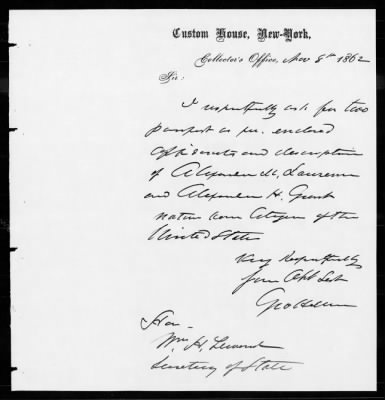 Custom House, New-York,
Collector's Office, Nov 8th 1862
Sir:
I respectfully ask for two
passport as per enclosed
affidavits and description
of Alexander M. Lawrence
and Alexander H. Grant
native born Citizens of the
United State
Very Respectfully
Your Obt Sert
Geo
Hon
Wm H. Seward
Secretary of State